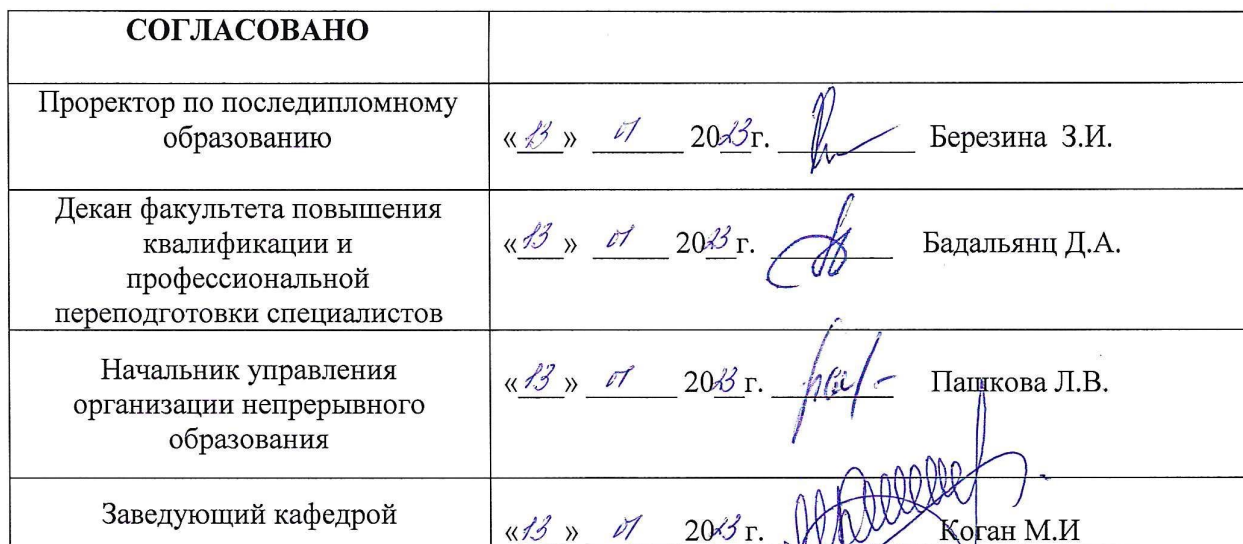 СОГЛАСОВАНО
Проректор по последипломному
образованию
«13» 01 2023г. Березина З.И.
Декан факультета повышения
квалификации и
профессиональной
переподготовки специалистов
«13» 01 2023г. Бадальянц Д.А.
Начальник управления
организации непрерывного
образования
«13» 01 2023 г. Пашкова Л.В.
Заведующий кафедрой
«13 » 01 2023 г. Коган М.И